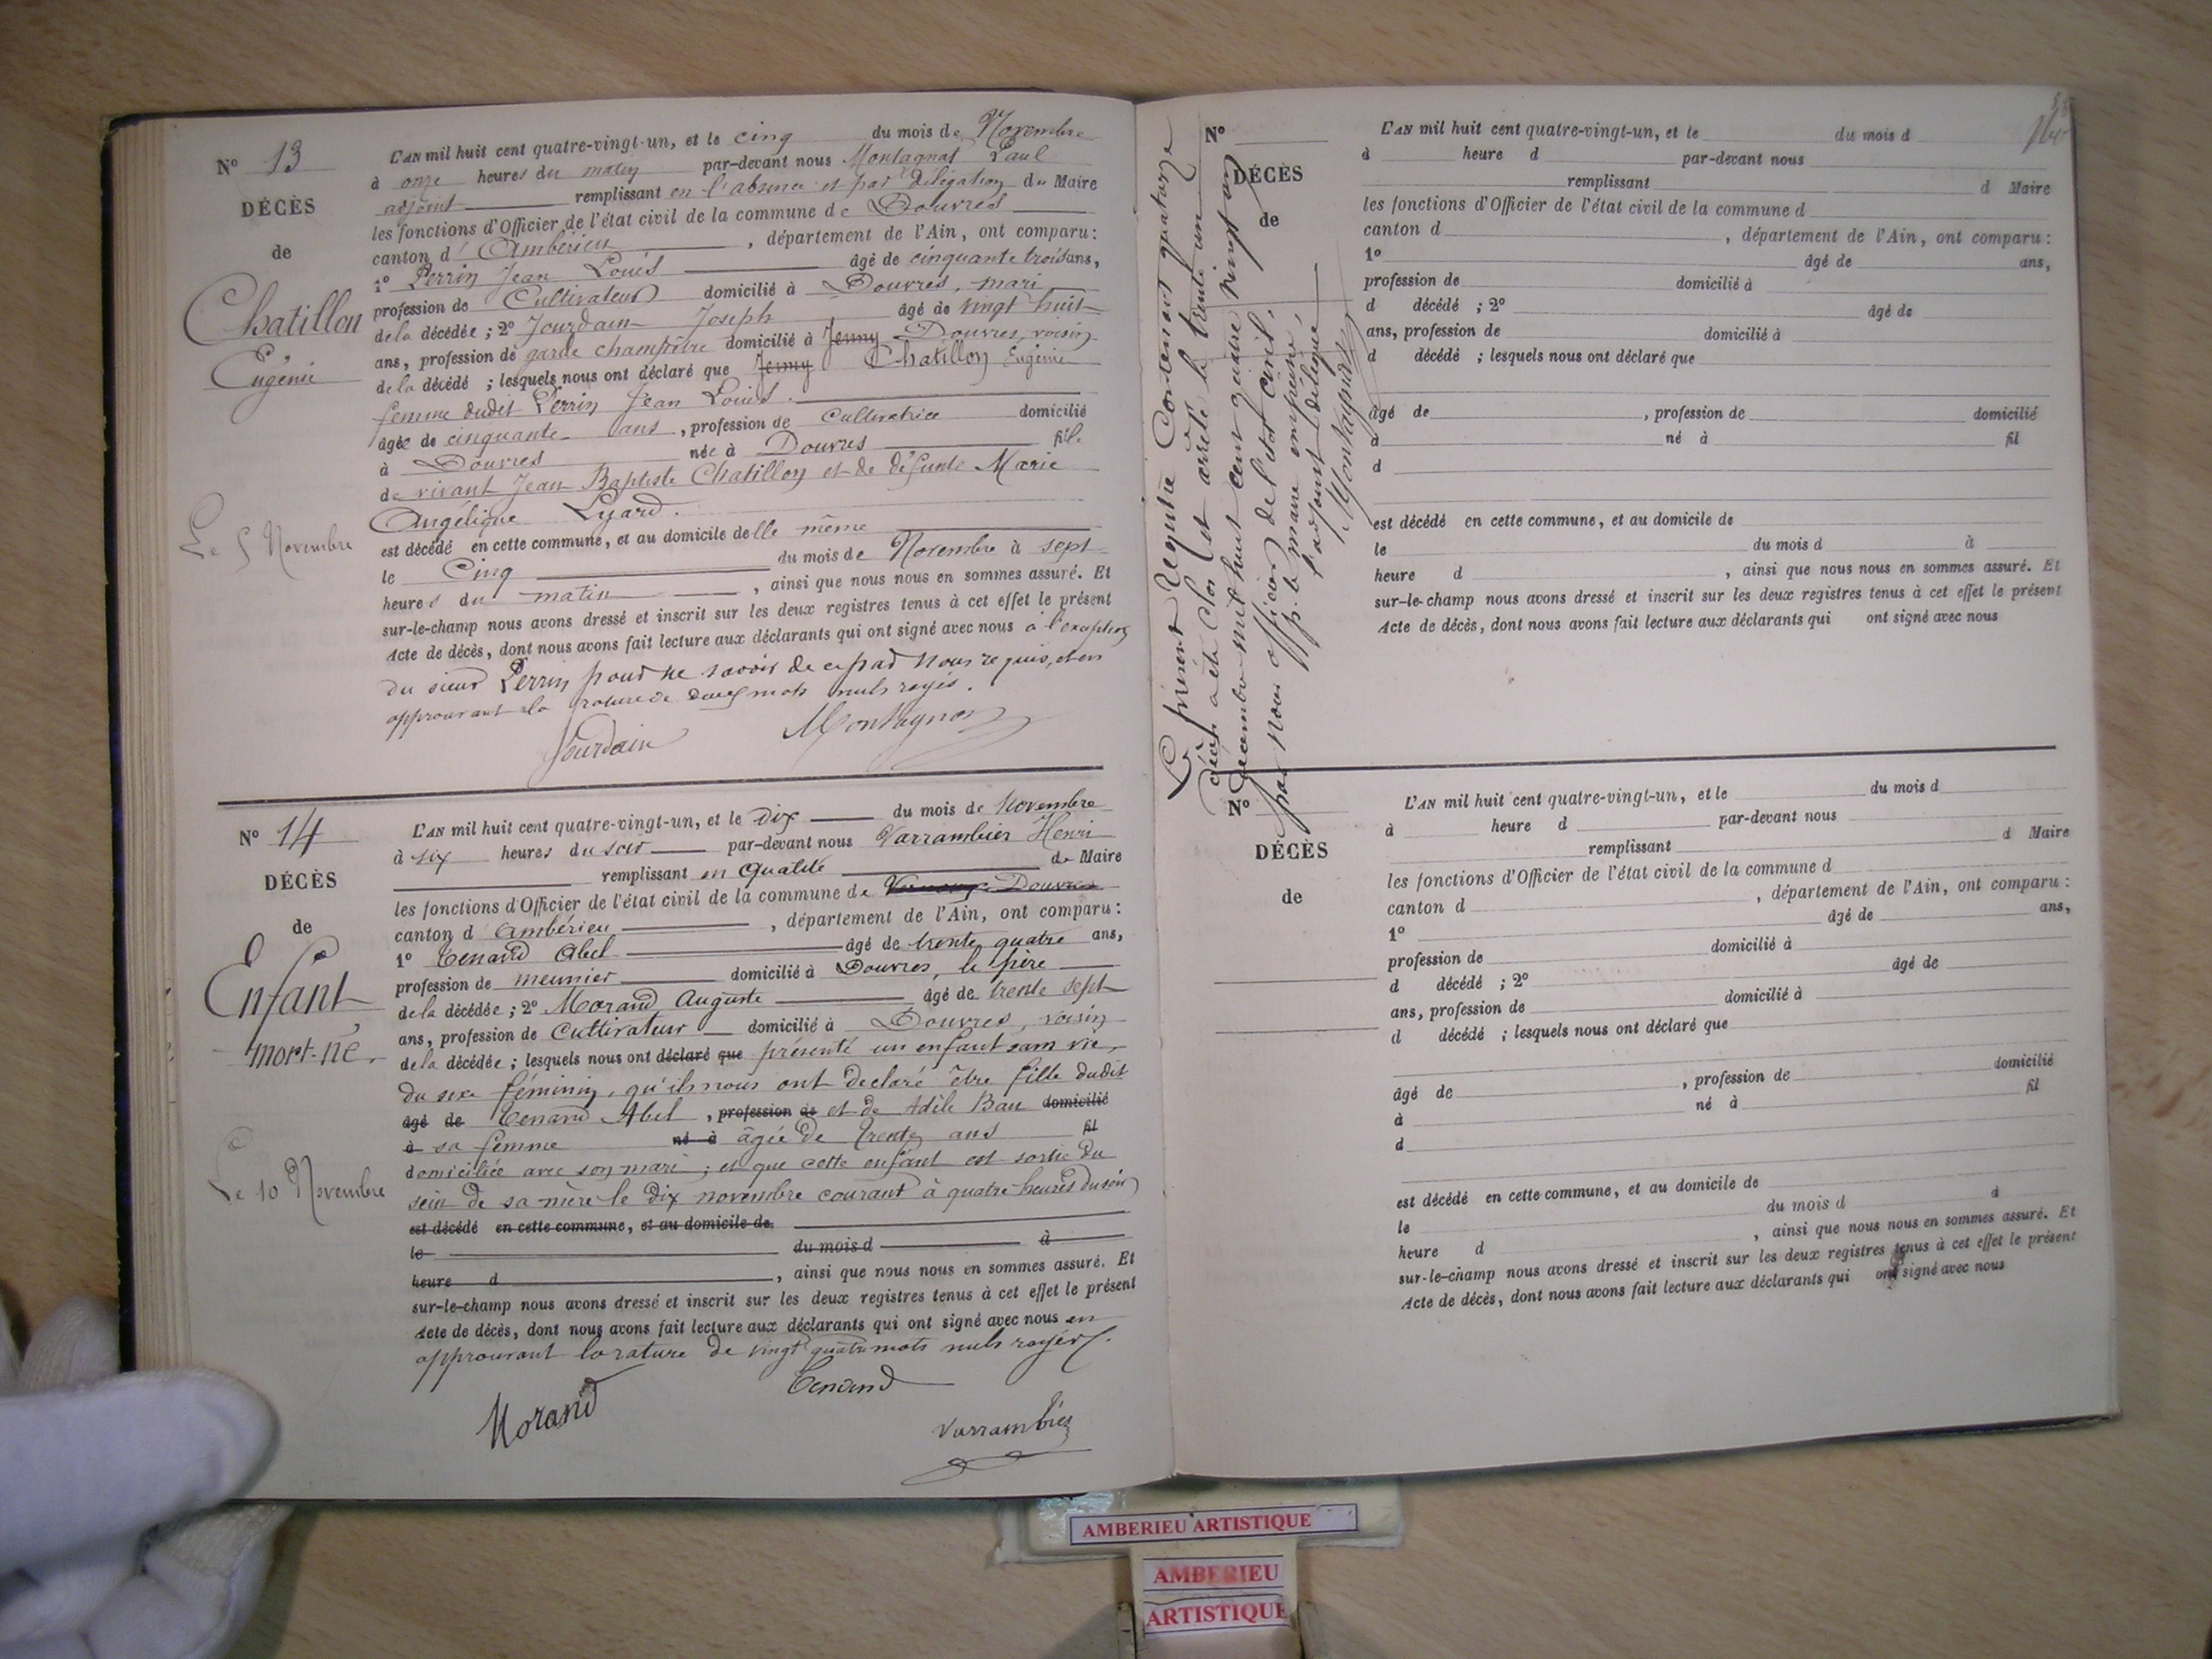 N° 13
DÉCÈS
de
Chatillon
Eugénie
Le 5 Novembre
L'AN mil huit cent quatre-vingt-un, et le cinq du mois de Novembre
à onze heures du matin par-devant nous Montagnat Paul
adjoint remplissant en l'absence et par délégation du Maire
les fonctions d'Officier de l'état civil de la commune de Douvres
canton d'Ambérieu, département de l'Ain, ont comparu:
1° Perrin Jean Louis âgé de cinquante trois ans,
profession de Cultivateur domicilié à Douvres, mari
de la décédée; 2° Jourdain Joseph âgé de vingt huit
ans, profession de garde champêtre domicilié à Jenny Douvres, voisin
de la décédé ; lesquels nous ont déclaré que Jenny Chatillon Eugénie
femme dudit Perrin Jean Louis.
âgée de cinquante ans, profession de cultivatrice domicilié
à Douvres née à Douvres fille
de vivant Jean Baptiste Chatillon et de défunte Marie
Angélique Lyard.
est décédé en cette commune, et au domicile de lle même
le Cinq du mois de Novembre à sept
heures du matin, ainsi que nous nous en sommes assuré. Et
sur-le-champ nous avons dressé et inscrit sur les deux registres tenus à cet effet le présent
Acte de décès, dont nous avons fait lecture aux déclarants qui ont signé avec nous à l'exception
du sieur Perrin pour ne savoir de ce par nous requis, et en
approuvant la rature de deux mots nuls rayés.
Jourdain Montagnat
N° 14
DÉCÈS
de
Enfant
mort-né.
Le 10 Novembre
L'AN mil huit cent quatre-vingt-un, et le Dix du mois de Novembre
à six heures du soir par-devant nous Varrambier Henri
remplissant en qualité de Maire
les fonctions d'Officier de l'état civil de la commune de Douvres
canton d'Ambérieu, département de l'Ain, ont comparu:
1° Tenand Abel âgé de trente quatre ans,
profession de meunier domicilié à Douvres, le père
de la décédée; 2° Morand Auguste âgé de trente sept
ans, profession de Cultivateur domicilié à Douvres, voisin
de la décédée; lesquels nous ont déclaré que présenté un enfant sans vie,
du sexe féminin, qu'ils nous ont déclaré être fille dudit
âgé de Tenand Abel, profession de et de Adèle Bau domicilié
à sa femme né à âgée de trente ans fil
domiciliée avec son mari; et que cette enfant est sortie du
sein de sa mère le dix novembre courant à quatre heures du soir
est décédé en cette commune, et au domicile de
le du mois d à
heure d, ainsi que nous nous en sommes assuré. Et
sur-le-champ nous avons dressé et inscrit sur les deux registres tenus à cet effet le présent
Acte de décès, dont nous avons fait lecture aux déclarants qui ont signé avec nous en
approuvant la rature de vingt quatre mots nuls rayés.
Morand Tenand
Varrambier
Le présent Registre Contenant quatorze
décès a été clos et arrêté le trente un
Décembre mil huit cent quatre vingt un
par nous officier de l'état civil.
pp. le maire empêché,
l'adjoint délégué
Montagnat
N°
DÉCÈS
de
L'AN mil huit cent quatre-vingt-un, et le du mois d
à heure d par-devant nous
remplissant d Maire
les fonctions d'Officier de l'état civil de la commune d
canton d, département de l'Ain, ont comparu:
1° âgé de ans,
profession de domicilié à
d décédé ; 2° âgé de
ans, profession de domicilié à
d décédé ; lesquels nous ont déclaré que
âgé de, profession de domicilié
à né à fil
d
est décédé en cette commune, et au domicile de
le du mois d à
heure d, ainsi que nous nous en sommes assuré. Et
sur-le-champ nous avons dressé et inscrit sur les deux registres tenus à cet effet le présent
Acte de décès, dont nous avons fait lecture aux déclarants qui ont signé avec nous
N°
DÉCÈS
de
L'AN mil huit cent quatre-vingt-un, et le du mois d
à heure d par-devant nous
remplissant d Maire
les fonctions d'Officier de l'état civil de la commune d
canton d, département de l'Ain, ont comparu:
1° âgé de ans,
profession de domicilié à
d décédé ; 2° âgé de
ans, profession de domicilié à
d décédé ; lesquels nous ont déclaré que
âgé de, profession de domicilié
à né à fil
d
est décédé en cette commune, et au domicile de
le du mois d à
heure d, ainsi que nous nous en sommes assuré. Et
sur-le-champ nous avons dressé et inscrit sur les deux registres tenus à cet effet le présent
Acte de décès, dont nous avons fait lecture aux déclarants qui ont signé avec nous
AMBERIEU ARTISTIQUE
AMBERIEU
ARTISTIQUE